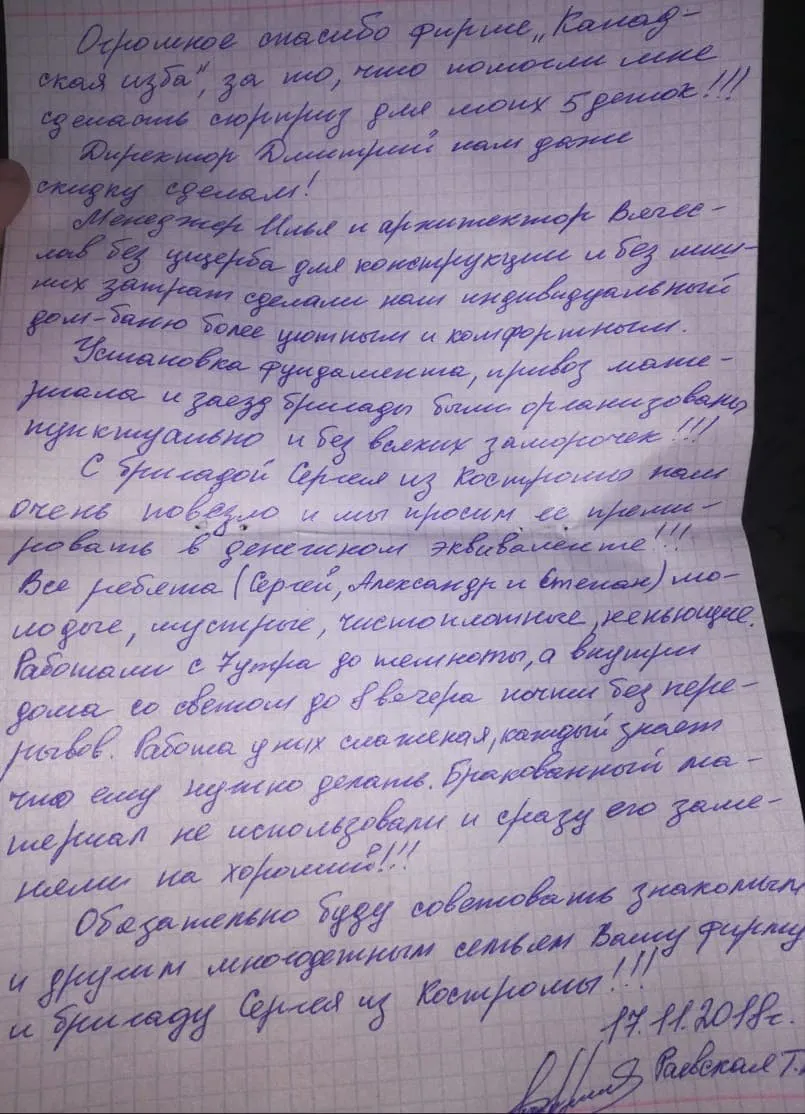 Огромное спасибо фирме „Канад-
ская изба", за то, что помогли мне
сделать сюрприз для моих 5 деток!!!
Директор Дмитрий нам даже
скидку сделал!
Менеджер Илья и архитектор Вячес-
лав без ущерба для конструкции и без лиш-
них затрат сделали наш индивидуальный
дом-баню более уютным и комфортным.
Установка фундамента, привоз мате-
риала и заезд бригады были организованы
пунктуально и без всяких заморочек!!!
С бригадой Сергея из Костромы нам
очень повезло и мы просим её преми-
ровать в денежном эквиваленте!!!
Все ребята (Сергей, Александр и Степан) мо-
лодые, шустрые, чистоплотные, непьющие.
Работали с 7 утра до темноты, а внутри
дома со светом до 8 вечера почти без пере-
рывов. Работа у них слаженая, каждый знает
что ему нужно делать. Бракованный ма-
териал не использовали и сразу его заме-
няли на хороший!!!
Обязательно буду советовать знакомым
и другим многодетным семьям Вашу фирму
и бригаду Сергея из Костромы!!!
17.11.2018г.
Раевская Т.